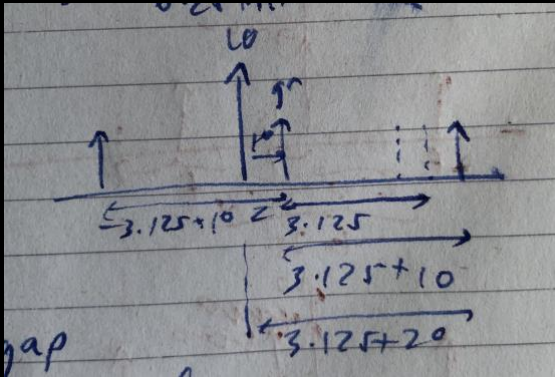 LO
10
-3.125+10
3.125
3.125+10
3.125+20
gap